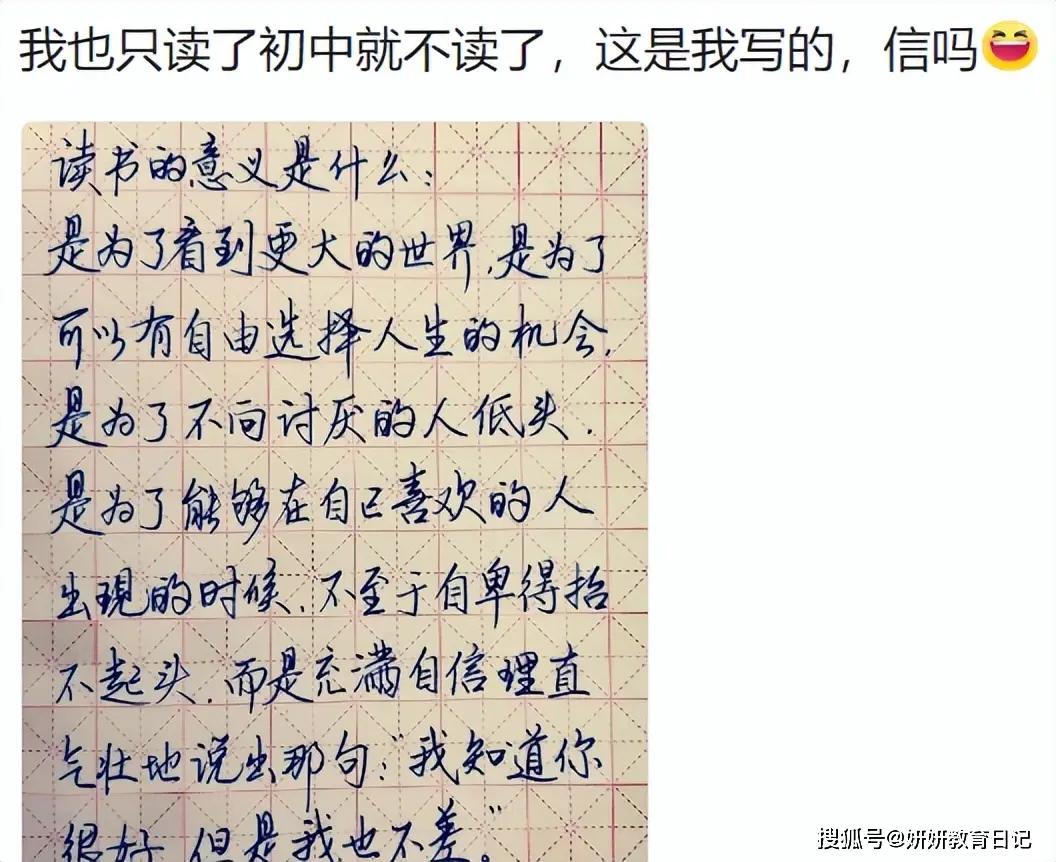 我也只读了初中就不读了，这是我写的，信吗😆
读书的意义是什么：
是为了看到更大的世界，是为了
可以有自由选择人生的机会，
是为了不向讨厌的人低头．
是为了能够在自己喜欢的人
出现的时候，不至于自卑得抬
不起头，而是充满自信理直
气壮地说出那句：“我知道你
很好，但是我也不差。”
搜狐号@妍妍教育日记